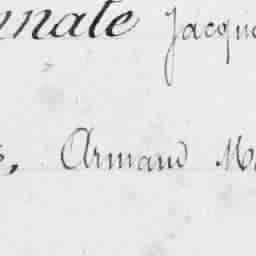 nnale Jacqu
, Armand M